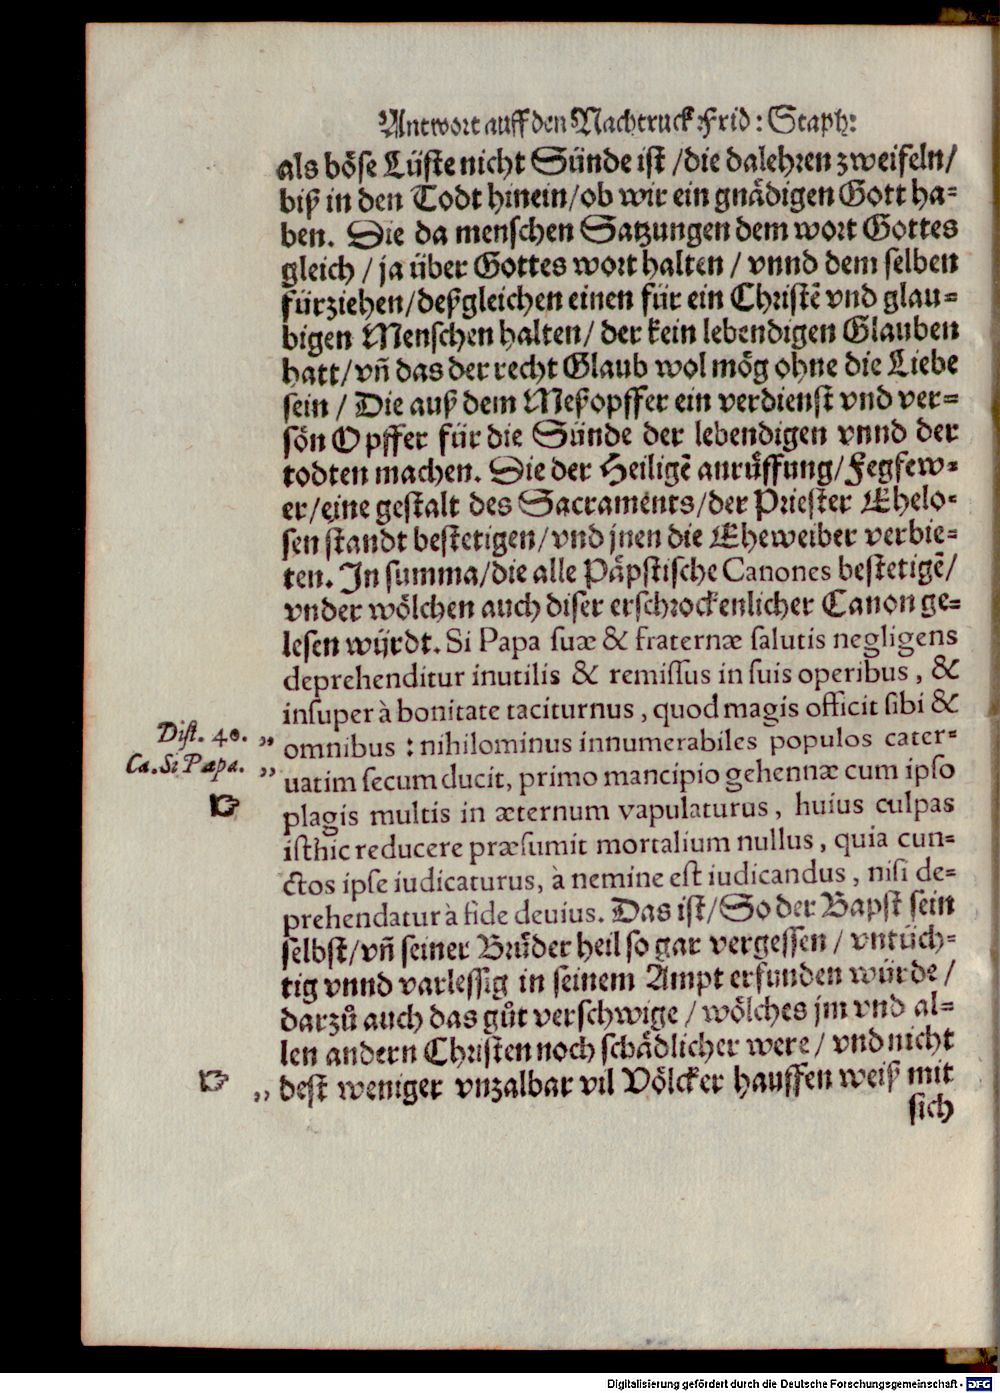 Antwort auff den Nachtruck Frid: Staph:
als böse Lüste nicht Sünde ist /die da lehren zweifeln/
biß in den Todt hinein/ob wir ein gnädigen Gott ha-
ben. Die da menschen Satzungen dem wort Gottes
gleich / ja über Gottes wort halten / vnnd dem selben
fürziehen/deßgleichen einen für ein Christē vnd glau-
bigen Menschen halten/ der kein lebendigen Glauben
hatt/vñ das der recht Glaub wol mög ohne die Liebe
sein / Die auß dem Meßopffer ein verdienst vnd ver-
sön Opffer für die Sünde der lebendigen vnnd der
todten machen. Die der Heiligē anrůffung/Fegfew-
er/eine gestalt des Sacraments/der Priester Ehelo-
sen standt bestetigen/vnd jnen die Eheweiber verbie-
ten. In summa/die alle Päpstische Canones bestetigē/
vnder wölchen auch diser erschrockenlicher Canon ge-
lesen wijrdt. Si Papa suæ & fraternæ salutis negligens
deprehenditur inutilis & remissus in suis operibus, &
insuper à bonitate taciturnus, quod magis officit sibi &
Dist. 40. „ omnibus : nihilominus innumerabiles populos cater-
Ca. Si Papa. „ uatim secum ducit, primo mancipio gehennæ cum ipso
☞ plagis multis in æternum vapulaturus, huius culpas
isthic reducere præsumit mortalium nullus, quia cun-
ctos ipse iudicaturus, à nemine est iudicandus, nisi de-
prehendatur à fide deuius. Das ist/So der Bapst sein
selbst/vñ seiner Brůder heil so gar vergessen / vntüch-
tig vnnd varlessig in seinem Ampt erfunden würde /
darzů auch das gůt verschwige / wölches jm vnd al-
len andern Christen noch schädlicher were / vnd nicht
☞ „ dest weniger vnzalbar vil Völcker hauffen weiß mit
sich
Digitalisierung gefördert durch die Deutsche Forschungsgemeinschaft - DFG